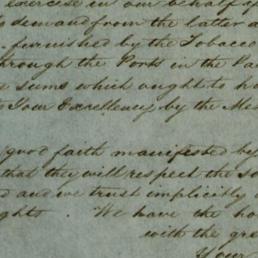 exercise in our behalf
demand from the latter
furnished by the Tobacco
through the Ports in the
sums which ought to
Your Excellency by the
good faith manifested by
that they will respect the
and we trust implicitly
ghts. We have the ho
with the gre
Your